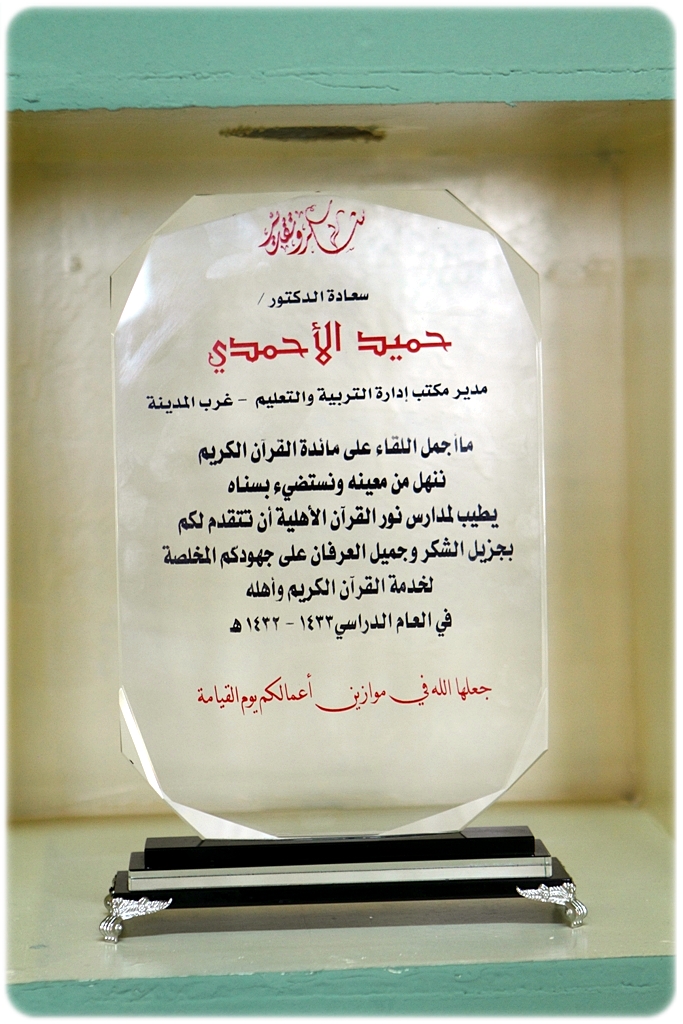 شكر وتقدير
سعادة الدكتور /
حميد الأحمدي
مدير مكتب إدارة التربية والتعليم - غرب المدينة
ماأجمل اللقاء على مائدة القرآن الكريم
ننهل من معينه ونستضيء بسناه
يطيب لمدارس نور القرآن الأهلية أن تتقدم لكم
بجزيل الشكر وجميل العرفان على جهودكم المخلصة
لخدمة القرآن الكريم وأهله
في العام الدراسي ١٤٣٣ - ١٤٣٢ هـ
جعلها الله في موازين أعمالكم يوم القيامة